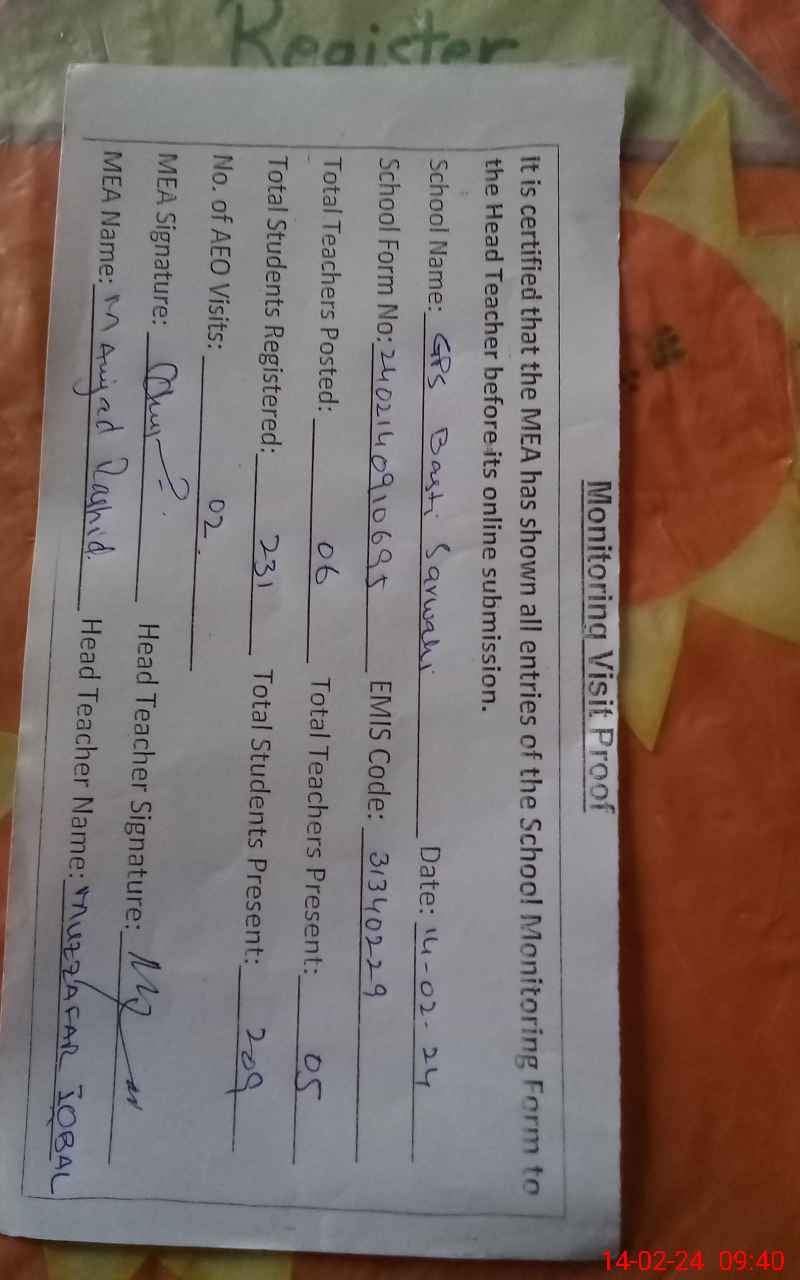 Register
Monitoring Visit Proof
It is certified that the MEA has shown all entries of the School Monitoring Form to
the Head Teacher before its online submission.
School Name: GPS Basti Sarwahi Date: 14-02-24
School Form No: 2402140910695 EMIS Code: 31340229
Total Teachers Posted: 06 Total Teachers Present: 05
Total Students Registered: 231 Total Students Present: 209
No. of AEO Visits: 02
MEA Signature: Head Teacher Signature:
MEA Name: M Amjad Rashid Head Teacher Name: MUZZAFAR IQBAL
14-02-24 09:40